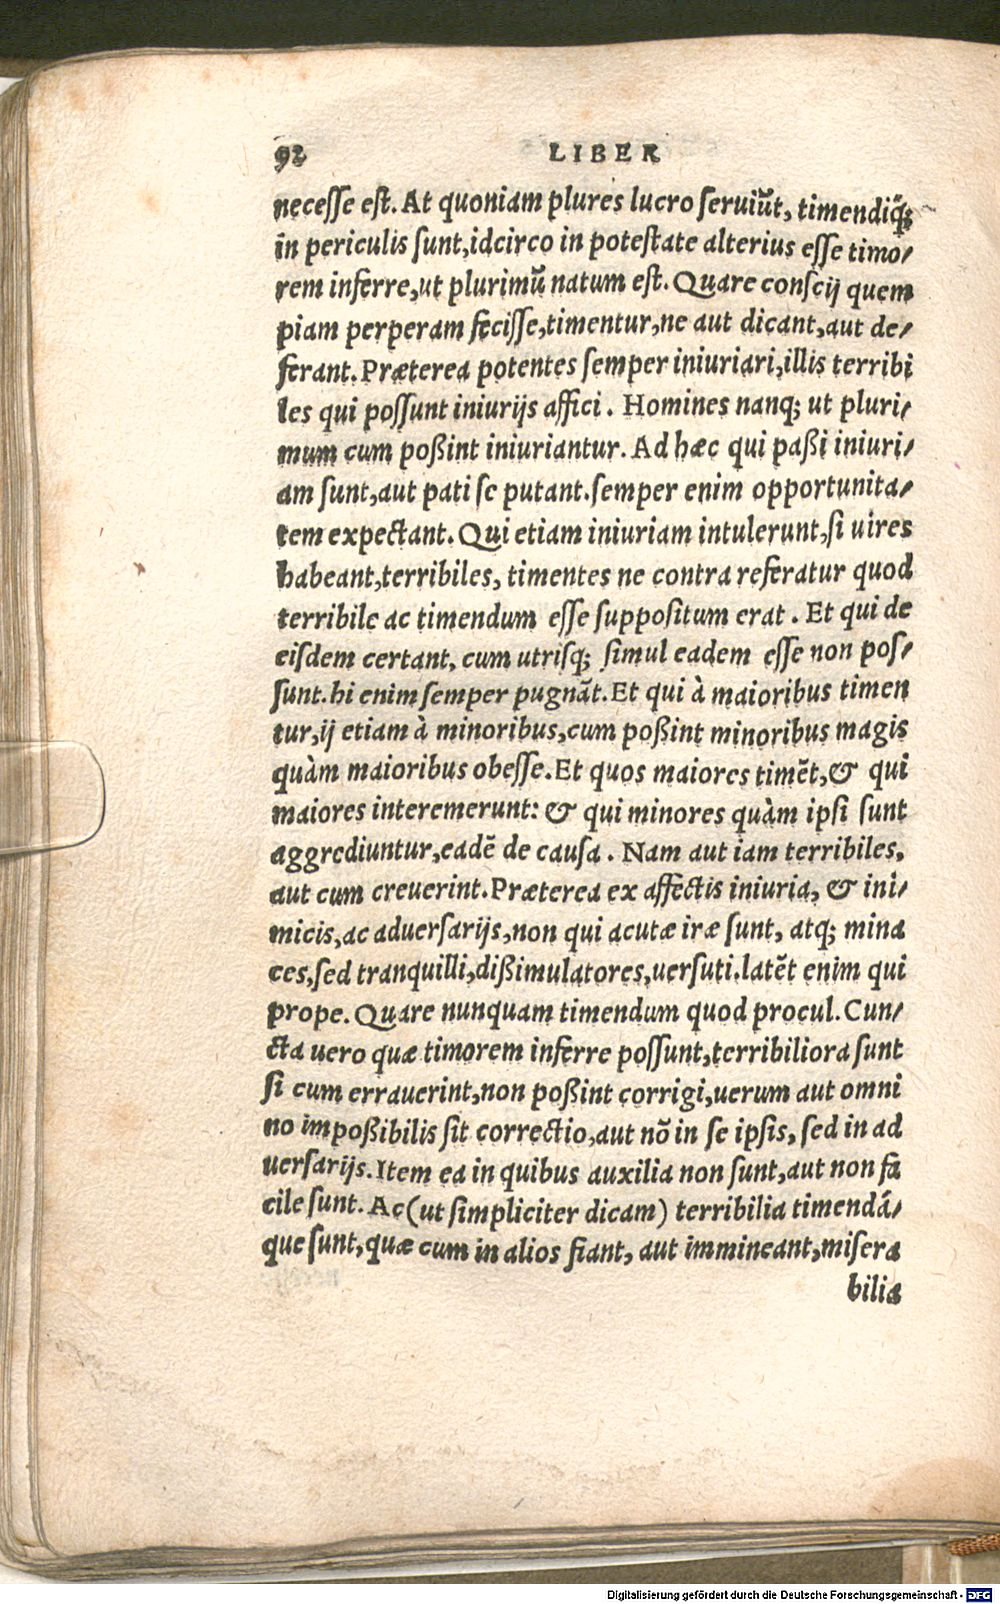 92 LIBER
necesse est. At quoniam plures lucro seruiũt, timendiq̃;
in periculis sunt, idcirco in potestate alterius esse timo-
rem inferre, ut plurimũ natum est. Quare conscij quem
piam perperam fecisse, timentur, ne aut dicant, aut de-
ferant. Præterea potentes semper iniuriari, illis terribi
les qui possunt iniurijs affici. Homines nanq; ut pluri-
mum cum poßint iniuriantur. Ad hæc qui paßi iniuri-
am sunt, aut pati se putant. semper enim opportunita-
tem expectant. Qui etiam iniuriam intulerunt, si uires
habeant, terribiles, timentes ne contra referatur quod
terribile ac timendum esse suppositum erat. Et qui de
eisdem certant, cum utrisq; simul eadem esse non pos-
sunt. hi enim semper pugnãt. Et qui à maioribus timen
tur, ij etiam à minoribus, cum poßint minoribus magis
quàm maioribus obesse. Et quos maiores timẽt, & qui
maiores interemerunt: & qui minores quàm ipsi sunt
aggrediuntur, eadẽ de causa. Nam aut iam terribiles,
aut cum creuerint. Præterea ex affectis iniuria, & ini-
micis, ac aduersarijs, non qui acutæ iræ sunt, atq; mina
ces, sed tranquilli, dißimulatores, uersuti. latẽt enim qui
prope. Quare nunquam timendum quod procul. Cun-
cta uero quæ timorem inferre possunt, terribiliora sunt
si cum errauerint, non poßint corrigi, uerum aut omni
no impoßibilis sit correctio, aut nõ in se ipsis, sed in ad
uersarijs. Item ea in quibus auxilia non sunt, aut non fa
cile sunt. Ac (ut simpliciter dicam) terribilia timendá-
que sunt, quæ cum in alios fiant, aut immineant, misera
bilia
Digitalisierung gefördert durch die Deutsche Forschungsgemeinschaft - DFG